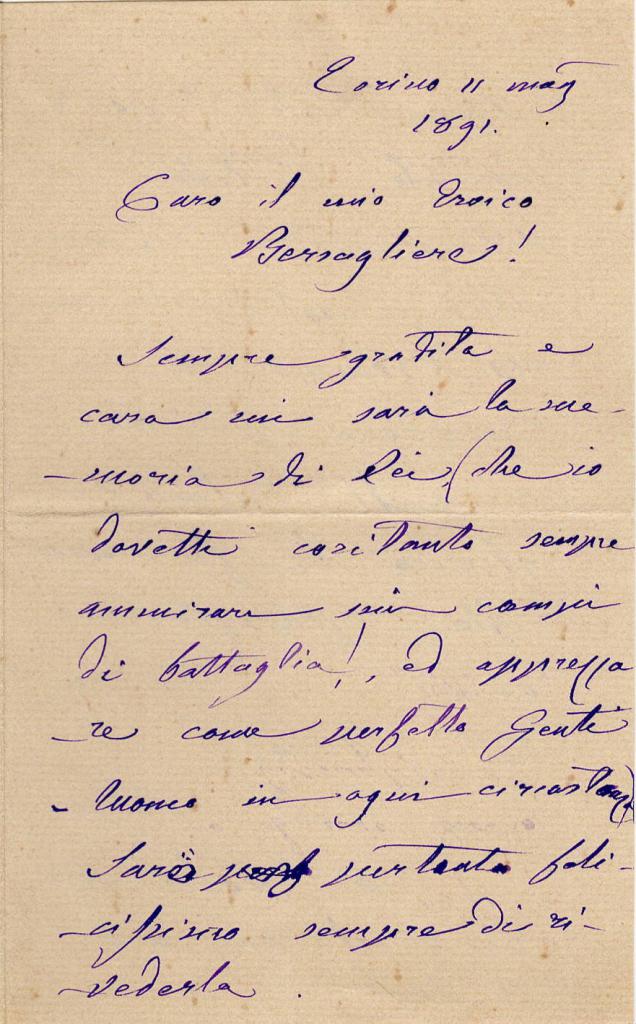 Torino 11 mag
1891.
Caro il mio Eroico
Bersagliere!
Sempre gradita e
cara mi sarà la me-
-moria di Lei, (che io
dovetti cositanto sempre
ammirare sui campi
di battaglia!, ed apprezza
-re come perfetto Gentil
-uomo in ogni circostanza)
Sarò pertanto feli-
-cissimo sempre di ri-
-vederla.